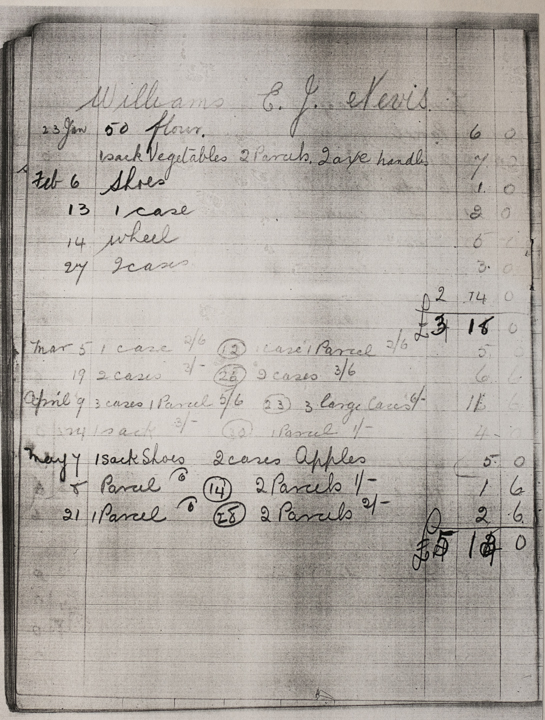 Williams E. J. Nevis.
23 Jan 50 flour. 6 0
1sack Vegetables 2 Parcels. 2 axe handles 7
Feb 6 Shoes 1 0
13 1 case 2 0
14 wheel 5
27 2 cases 3. 0
2 14 0
£3 18 0
Mar 5 1 case 2/6 (12) 1 case 1 Parcel 2/6 5
19 2 cases 3/- (26) 2 cases 3/6 6 6
April 9 3 cases 1 Parcel 5/6 (23) 3 large Cases 6/- 6
1 sack 3/- 1 Parcel 1/- 4
May 7 1sack Shoes 2 cases Apples 5 0
Parcel 6 (14) 2 Parcels 1/- 1 6
21 1 Parcel 6 (28) 2 Parcels 2/- 2 6
£5 0